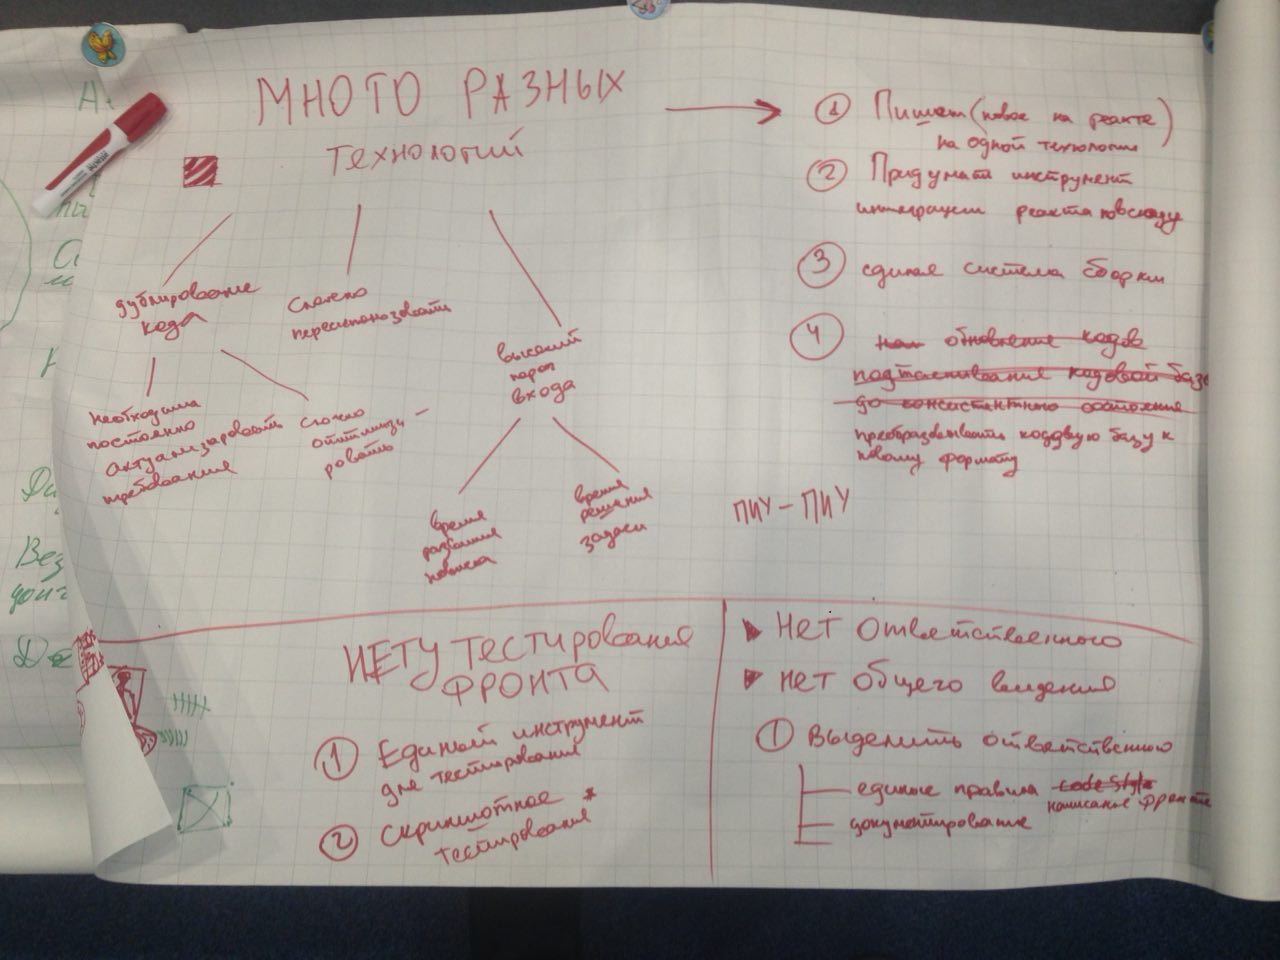 МНОГО РАЗНЫХ
технологий
дублирование
кода
необходима
постоянно
актуализировать
требования
сложно
оптимизи-
ровать
Сложно
переиспользовать
высокий
порог
входа
время
развития
новичка
время
решения
задачи
1 Пишем (новое на реакте)
на одной технологии
2 Придумать инструмент
интеграции реакта повсюду
3 единая система сборки
4 обновление кодов
подтаскивание кодовой базы
до консистентного состояния
преобразовывать кодовую базу к
новому формату
ПИУ-ПИУ
НЕТУ тестирования
ФРОНТА
1 Единый инструмент
для тестирования
2 Скриншотное *
тестирование
Нет ответственного
нет общего видения
1 Выделить ответственного
единые правила code style
написание фронта
документирование
Вез